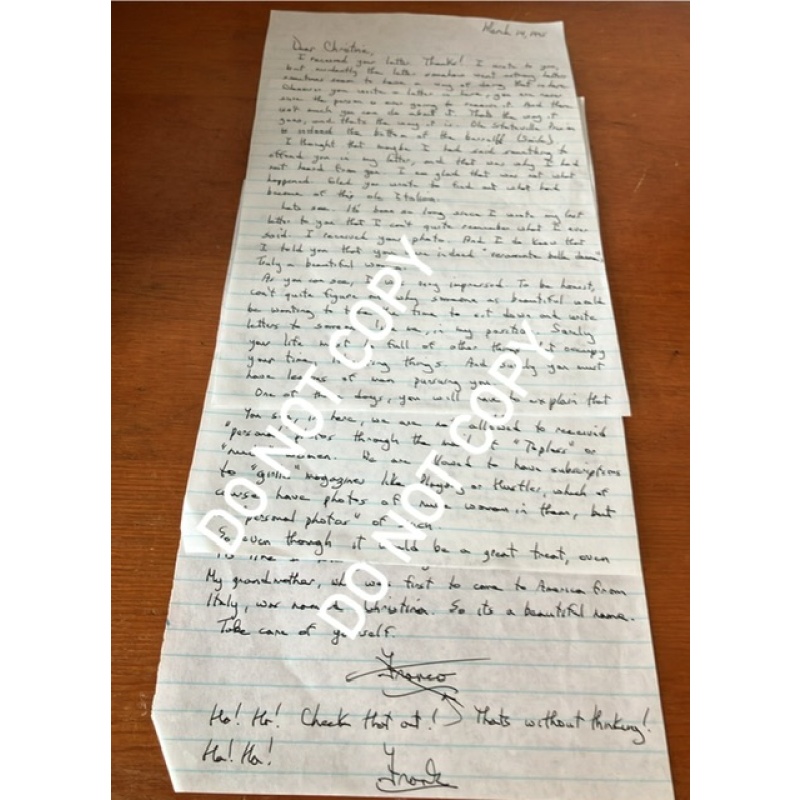 March
Dear Christina,
I received your letter. Thanks! I wrote to you,
but evidently the letter somehow went astray. Letters
sometimes seem to have a way of doing that in here.
Whenever you write a letter in here, you are never
sure the person is ever going to receive it. And there
isn't much you can do about it. Thats the way it
goes, and thats the way it is. Ole Stateville Prison
is indeed the bottom of the barrel!! (Smile).
I thought that maybe I had said something to
offend you in my letter, and that was why I had
not heard from you. I am glad that was not what
happened. Glad you wrote to find out what had
become of this ole Italian.
Lets see. Its been so long since I wrote my last
letter to you that I can't quite remember what I even
said. I received your photo. And I do know that
I told you that you were indeed "
Truly a beautiful woman.
As you can see, I was very impressed. To be honest,
can't quite figure out why someone as beautiful would
be wanting to take time to set down and write
letters to someone like me, in my position. Surely
your life must be full of other things that occupy
your time, things. And surely you must
have legions of men pursuing you.
One of these days, you will have to explain that
You see, in here, we are not allowed to received
"personal" photos through the mail of "Topless" or
women. We are allowed to have subscriptions
to "girlie" magazines like Playboy or Hustler, which of
course have photos of nude women in them, but
"personal photos" of
So even though it would be a great treat, even
My grandmother, who was first to come to America from
Italy, was named Christina. So its a beautiful name.
Take care of yourself.
Franco
Ha! Ha! Check that out! Thats without thinking!
Ha! Ha!
Frank
DO NOT COPY
DO NOT COPY